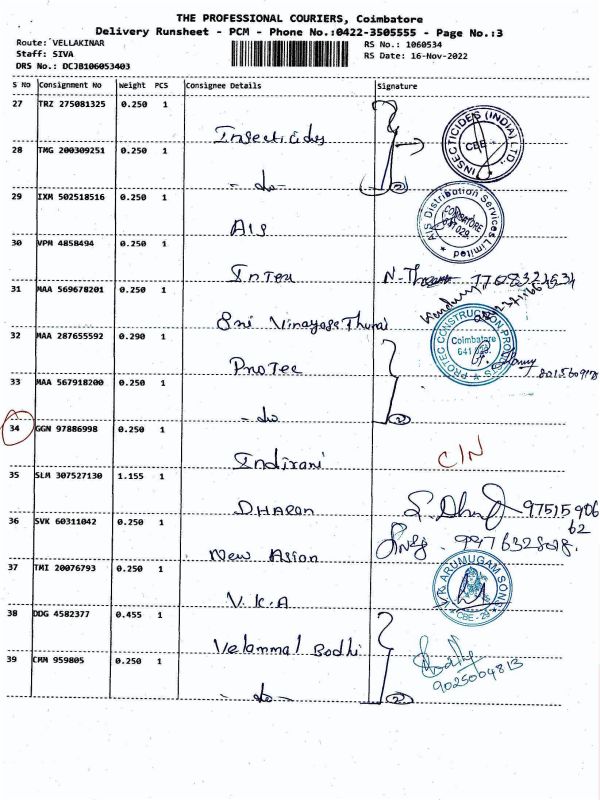 THE PROFESSIONAL COURIERS, Coimbatore
Delivery Runsheet - PCM - Phone No.:0422-3505555 - Page No.:3
Route: VELLAKINAR
RS No.: 1060534
Staff: SIVA
RS Date: 16-Nov-2022
DRS No.: DCJB106053403
S No Consignment No Weight PCS Consignee Details Signature
27 TRZ 275081325 0.250 1 Insecticides
INSECTICIDES (INDIA) LTD. CBE
28 TMG 200309251 0.250 1 - do -
2
29 IXM 502518516 0.250 1 AIS
AIS Distribution Services Limited COIMBATORE 641 029
30 VPM 4858494 0.250 1 Intex
31 MAA 569678201 0.250 1 Sri Vinayaga Thunai
32 MAA 287655592 0.290 1 Protec
PROTEC CONSTRUCTION PRODUCTS Coimbatore 641 029
33 MAA 567918200 0.250 1 - do -
2
34 GGN 97886998 0.250 1 Indirani C/N
35 SLM 307527130 1.155 1 DHARON
97515 906 62
36 SVK 60311042 0.250 1 New Asian
37 TMI 20076793 0.250 1 V.K.A
V.R. ARUMUGAM SONS CBE - 29
38 DDG 4582377 0.455 1 Velammal Bodhi
39 CMM 959805 0.250 1 - do -
2
9025004813